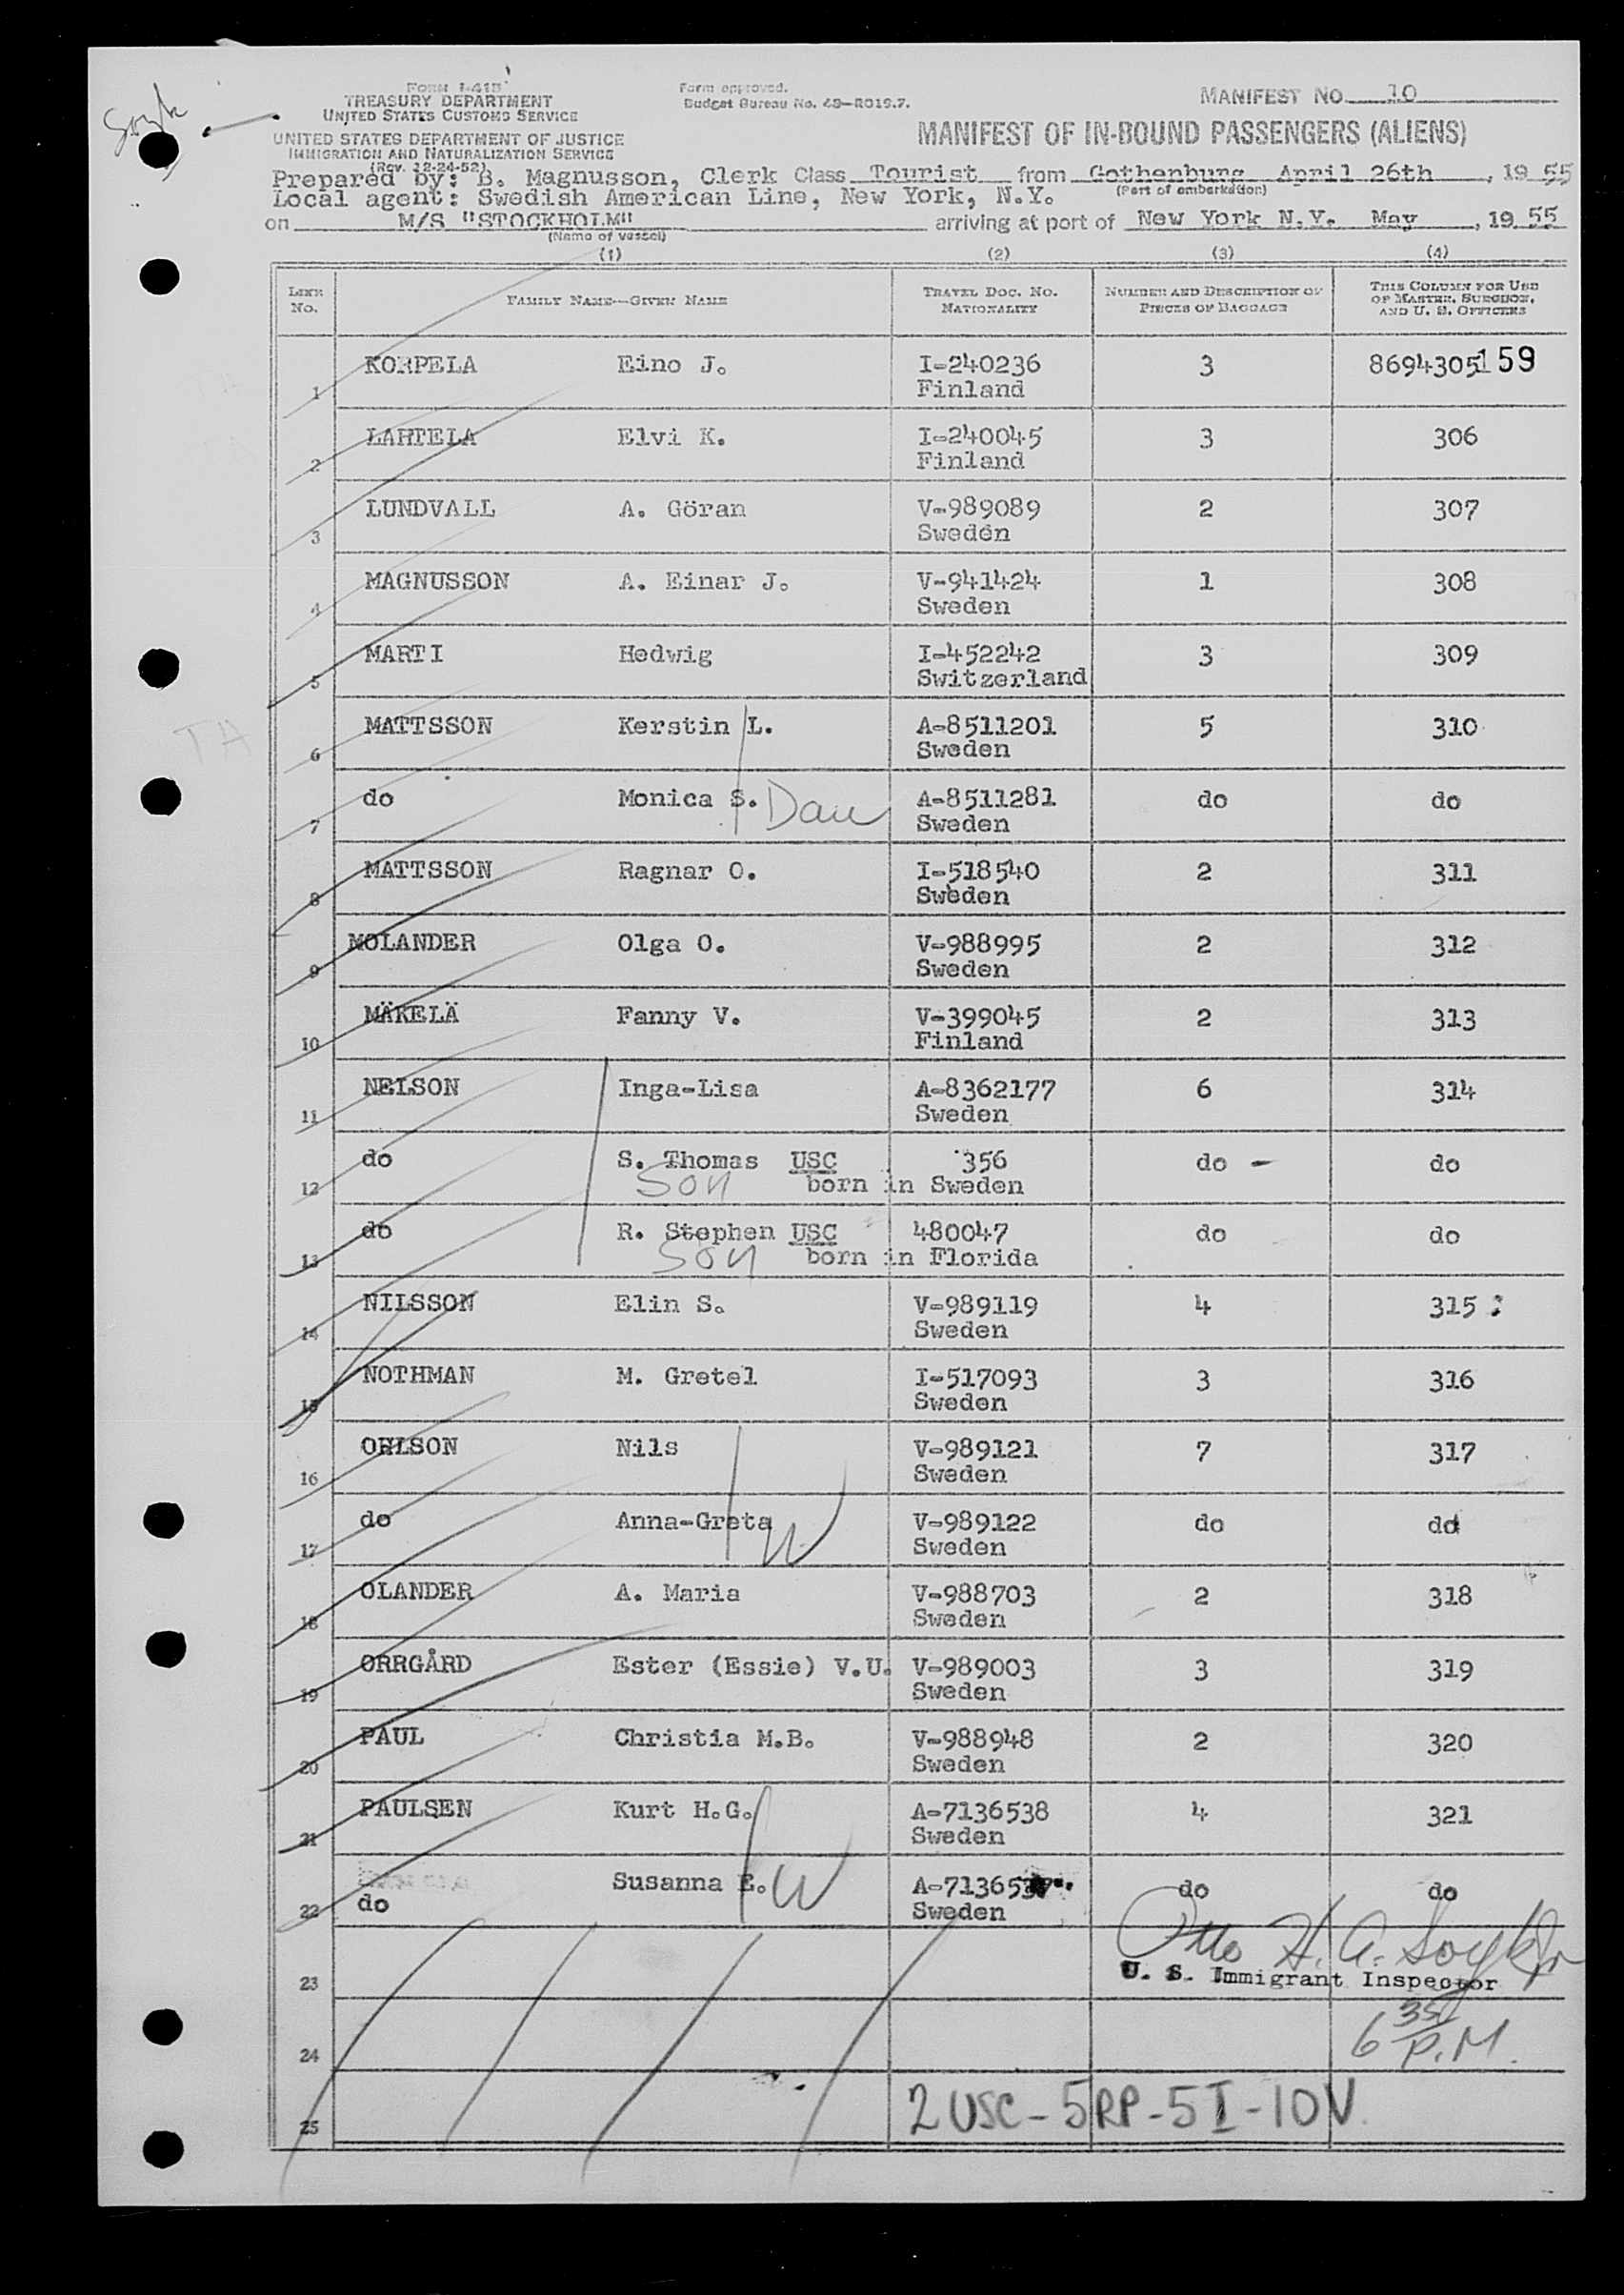 Form I-418
TREASURY DEPARTMENT
UNITED STATES CUSTOMS SERVICE
UNITED STATES DEPARTMENT OF JUSTICE
IMMIGRATION AND NATURALIZATION SERVICE
(Rev. 12-24-52)
Form approved.
Budget Bureau No. 43-R019.7.
MANIFEST NO. 10
MANIFEST OF IN-BOUND PASSENGERS (ALIENS)
Prepared by: B. Magnusson, Clerk Class Tourist from Gothenburg April 26th, 19 55
(Port of embarkation)
Local agent: Swedish American Line, New York, N.Y.
on M/S "STOCKHOLM" arriving at port of New York N.Y. May, 19 55
(Name of vessel)
(1) (2) (3) (4)
LINE No. FAMILY NAME—GIVEN NAME TRAVEL DOC. NO. NATIONALITY NUMBER AND DESCRIPTION OF PIECES OF BAGGAGE THIS COLUMN FOR USE OF MASTER, SURGEON, AND U. S. OFFICERS
1 KORPELA Eino J. I-240236 3 8694305 159
Finland
2 LAHTELA Elvi K. I-240045 3 306
Finland
3 LUNDVALL A. Göran V-989089 2 307
Sweden
4 MAGNUSSON A. Einar J. V-941424 1 308
Sweden
5 MARTI Hedwig I-452242 3 309
Switzerland
TA
6 MATTSSON Kerstin L. A-8511201 5 310
Sweden
7 do Monica S. Dau A-8511281 do do
Sweden
8 MATTSSON Ragnar O. I-518540 2 311
Sweden
9 MOLANDER Olga O. V-988995 2 312
Sweden
10 MÄKELÄ Fanny V. V-399045 2 313
Finland
11 NELSON Inga-Lisa A-8362177 6 314
Sweden
12 do S. Thomas USC 356 do - do
Son born in Sweden
13 do R. Stephen USC 480047 do do
Son born in Florida
14 NILSSON Elin S. V-989119 4 315
Sweden
15 NOTHMAN M. Gretel I-517093 3 316
Sweden
16 OHLSON Nils V-989121 7 317
Sweden
17 do Anna-Greta W V-989122 do do
Sweden
18 OLANDER A. Maria V-988703 2 318
Sweden
19 ORRGÅRD Ester (Essie) V.U. V-989003 3 319
Sweden
20 PAUL Christia M.B. V-988948 2 320
Sweden
21 PAULSEN Kurt H.G. A-7136538 4 321
Sweden
22 do Susanna E. W A-7136537 do do
Sweden
Otto H. A.
23 U. S. Immigrant Inspector
24 6 35 P.M.
25 2 USC - 5 RP - 5 I - 10 V